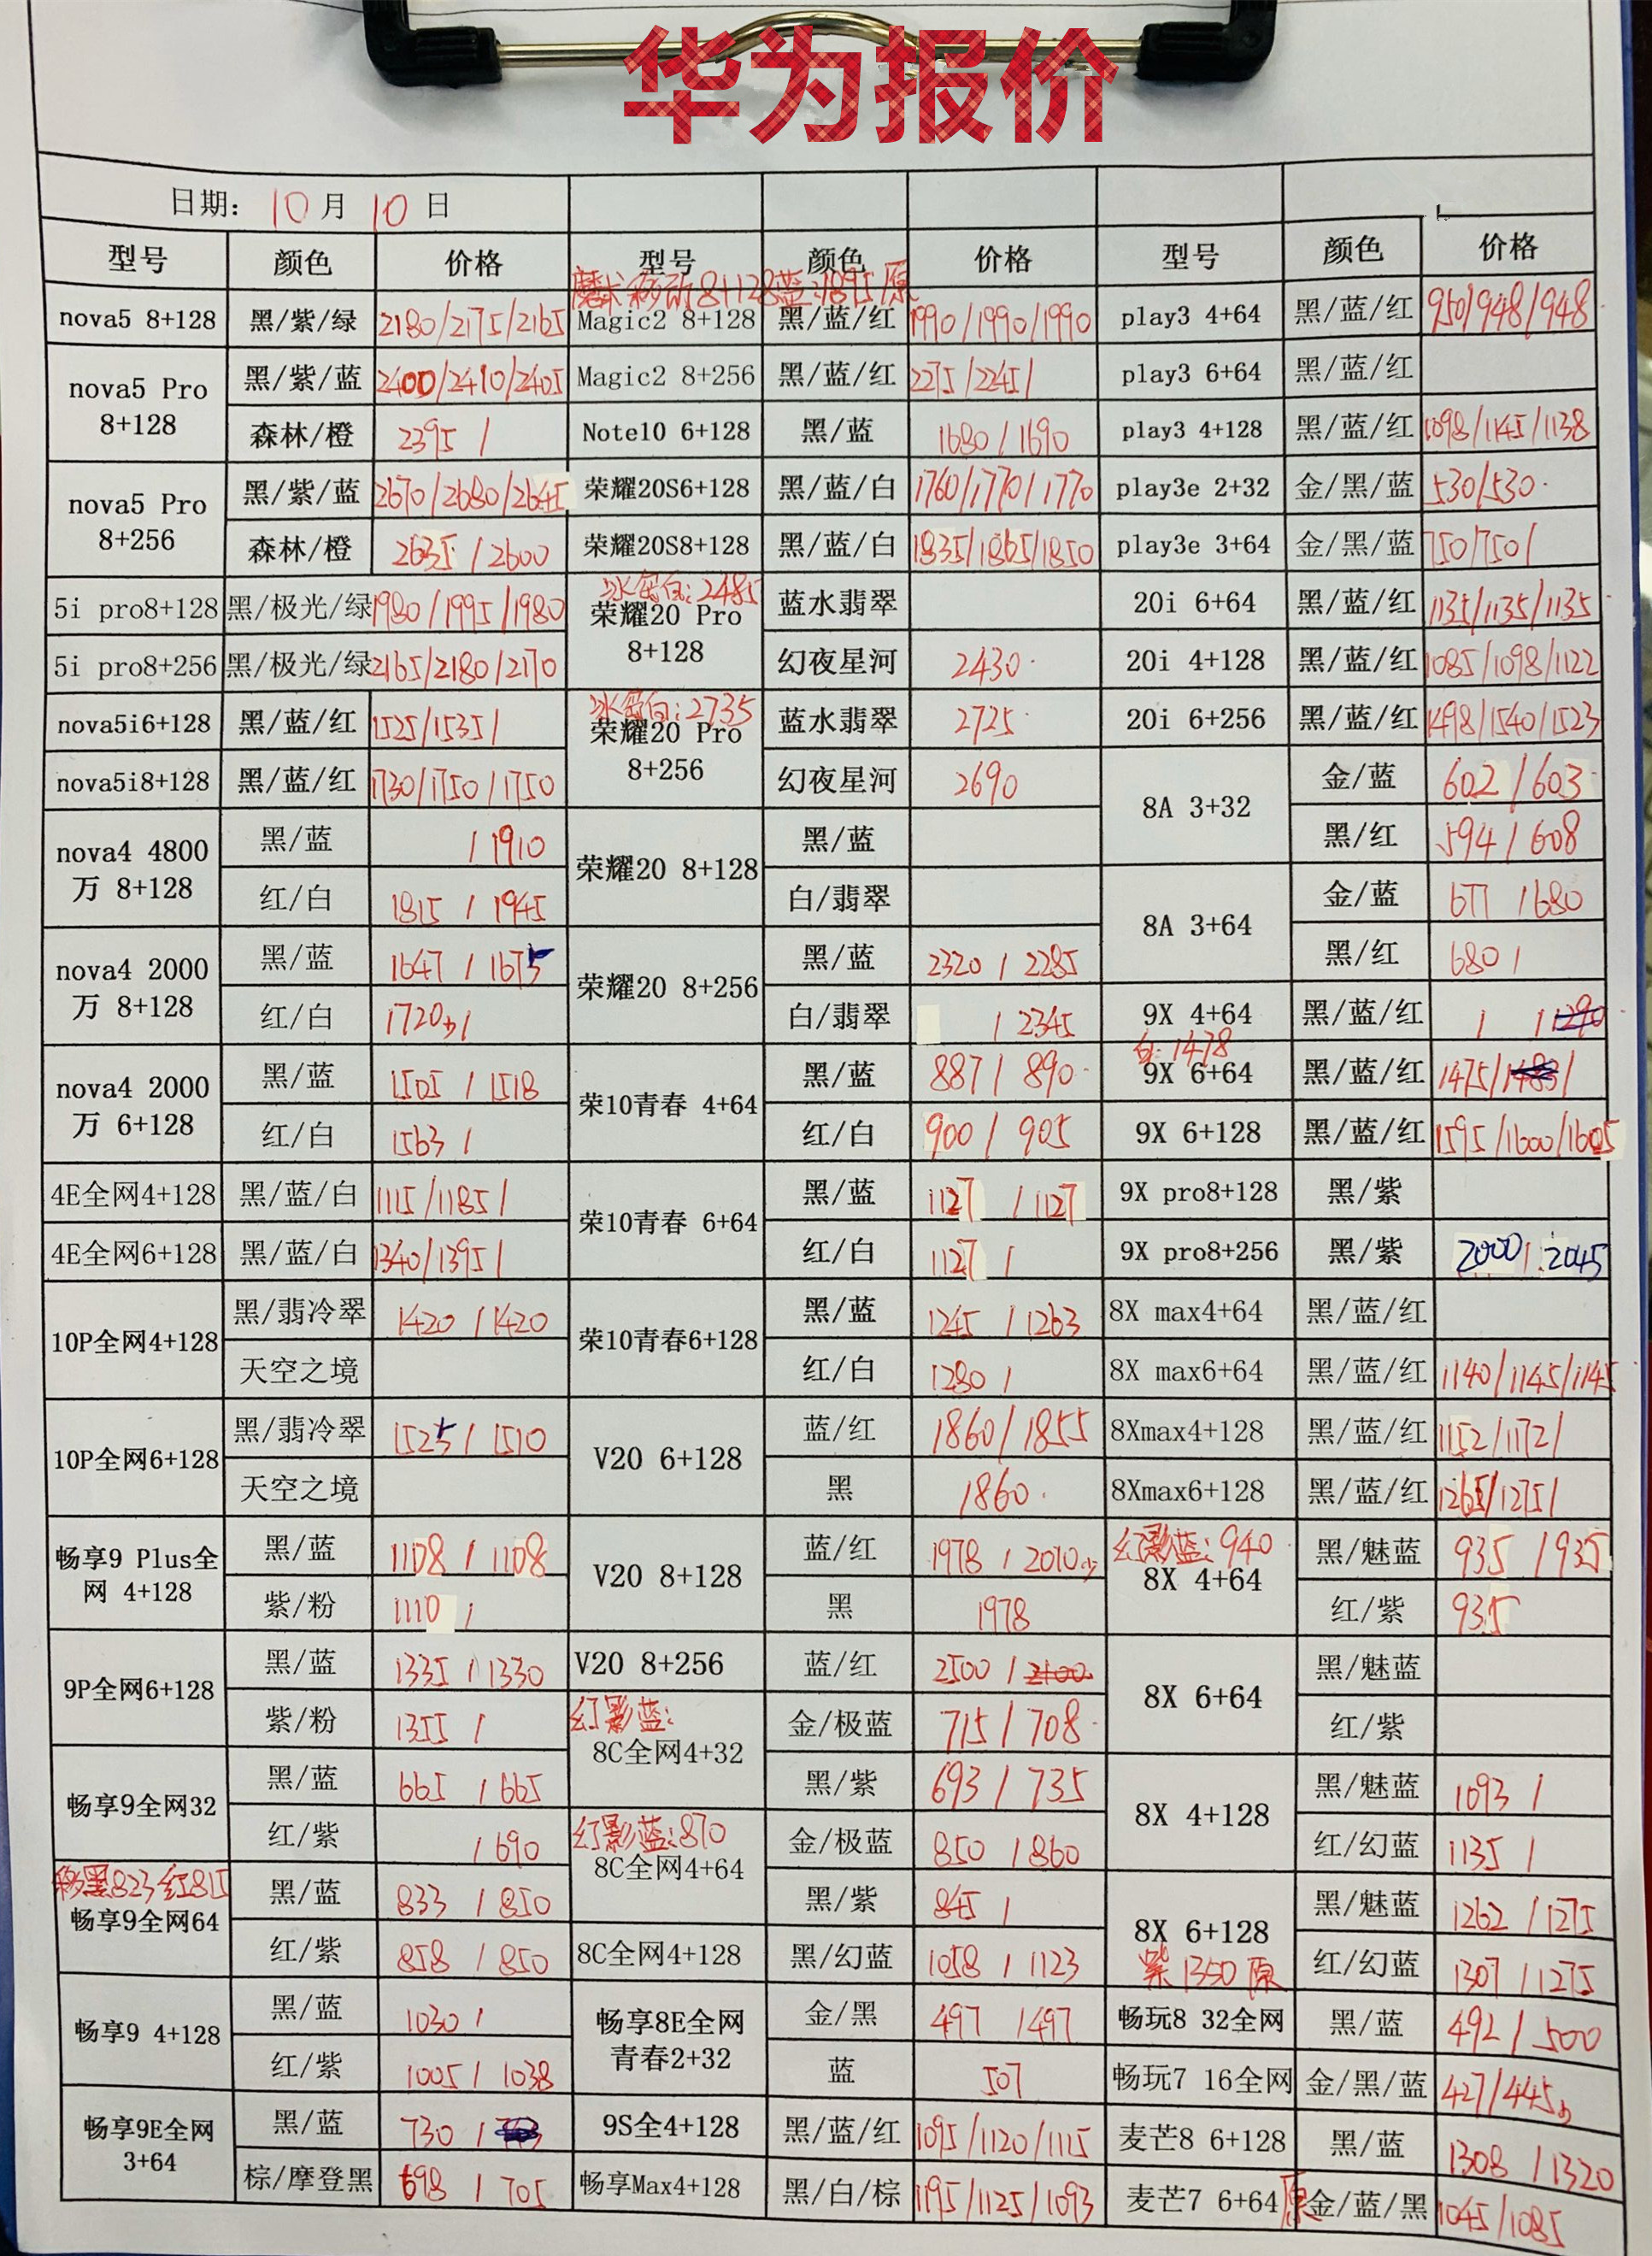 华为报价
日期: 10月10日
型号 颜色 价格 型号 颜色 价格 型号 颜色 价格
8+128蓝:1895原
nova5 8+128 黑/紫/绿 2180/2175/2165 Magic2 8+128 黑/蓝/红 1990/1990/1990 play3 4+64 黑/蓝/红 950/948/948
nova5 Pro 8+128 黑/紫/蓝 2400/2410/2405 Magic2 8+256 黑/蓝/红 2275/2245/ play3 6+64 黑/蓝/红
森林/橙 2395 / Note10 6+128 黑/蓝 1680/1690 play3 4+128 黑/蓝/红 1098/1145/1138
nova5 Pro 8+256 黑/紫/蓝 2670/2680/2645 荣耀20S6+128 黑/蓝/白 1760/1770/1770 play3e 2+32 金/黑/蓝 530/530
森林/橙 2635 / 2600 荣耀20S8+128 黑/蓝/白 1835/1865/1850 play3e 3+64 金/黑/蓝 750/750/
5i pro8+128 黑/极光/绿 1980/1995/1980 冰岛白:2485 荣耀20 Pro 8+128 蓝水翡翠 20i 6+64 黑/蓝/红 1135/1135/1135
5i pro8+256 黑/极光/绿 2165/2180/2170 幻夜星河 2430 20i 4+128 黑/蓝/红 1085/1098/1122
nova5i6+128 黑/蓝/红 1525/1535/ 冰岛白:2735 荣耀20 Pro 8+256 蓝水翡翠 2725 20i 6+256 黑/蓝/红 1498/1540/1523
nova5i8+128 黑/蓝/红 1730/1750/1750 幻夜星河 2690 8A 3+32 金/蓝 602/603
nova4 4800万 8+128 黑/蓝 /1910 荣耀20 8+128 黑/蓝 黑/红 594/608
红/白 1815 / 1945 白/翡翠 8A 3+64 金/蓝 677/680
nova4 2000万 8+128 黑/蓝 1647 / 1675 荣耀20 8+256 黑/蓝 2320 / 2285 黑/红 680/
红/白 1720少/ 白/翡翠 / 2345 9X 4+64 黑/蓝/红 / /1290
nova4 2000万 6+128 黑/蓝 1505 / 1518 荣10青春 4+64 黑/蓝 887/890 白:1478 9X 6+64 黑/蓝/红 1475/1483/
红/白 1563 / 红/白 900 / 905 9X 6+128 黑/蓝/红 1595/1600/1605
4E全网4+128 黑/蓝/白 1115/1185/ 荣10青春 6+64 黑/蓝 1127 / 1127 9X pro8+128 黑/紫
4E全网6+128 黑/蓝/白 1340/1395/ 红/白 1127 / 9X pro8+256 黑/紫 2000/2045
10P全网4+128 黑/翡冷翠 1420 / 1420 荣10青春6+128 黑/蓝 1245 / 1263 8X max4+64 黑/蓝/红
天空之境 红/白 1280 / 8X max6+64 黑/蓝/红 1140/1145/1145
10P全网6+128 黑/翡冷翠 1525 / 1510 V20 6+128 蓝/红 1860/1855 8Xmax4+128 黑/蓝/红 1152/1172/
天空之境 黑 1860 8Xmax6+128 黑/蓝/红 1265/1275/
畅享9 Plus全网 4+128 黑/蓝 1108 / 1108 V20 8+128 蓝/红 1978 / 2010少 幻影蓝:940 8X 4+64 黑/魅蓝 935 / 935
紫/粉 1110 / 黑 1978 红/紫 935
9P全网6+128 黑/蓝 1335 / 1330 V20 8+256 蓝/红 2500 / 2400 8X 6+64 黑/魅蓝
紫/粉 1355 / 幻影蓝: 8C全网4+32 金/极蓝 715 / 708 红/紫
畅享9全网32 黑/蓝 665 / 665 黑/紫 693 / 735 8X 4+128 黑/魅蓝 1093 /
红/紫 / 690 幻影蓝:870 8C全网4+64 金/极蓝 850 / 860 红/幻蓝 1135 /
移黑823 红815 畅享9全网64 黑/蓝 833 / 850 黑/紫 845 / 8X 6+128 紫1350原 黑/魅蓝 1262 / 1275
红/紫 858 / 850 8C全网4+128 黑/幻蓝 1058 / 1123 红/幻蓝 1307 / 1275
畅享9 4+128 黑/蓝 1030 / 畅享8E全网青春2+32 金/黑 497 / 497 畅玩8 32全网 黑/蓝 492 / 500
红/紫 1005 / 1038 蓝 507 畅玩7 16全网 金/黑/蓝 427/445少
畅享9E全网 3+64 黑/蓝 730 / 9S全4+128 黑/蓝/红 1095/1120/1115 麦芒8 6+128 黑/蓝 1308 / 1320
棕/摩登黑 698 / 705 畅享Max4+128 黑/白/棕 1195/1125/1093 麦芒7 6+64 原 金/蓝/黑 1045/1085